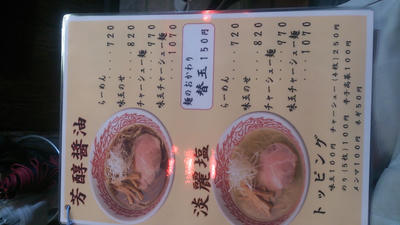 芳醇醤油
らーめん ... 720
味玉のせ ... 820
チャーシュー麺 970
味玉チャーシュー麺 1070
麺のおかわり
替玉 150円
淡麗塩
らーめん ... 720
味玉のせ ... 820
チャーシュー麺 970
味玉チャーシュー麺 1070
トッピング
味玉100円 チャーシュー(4枚)250円
のり(5枚)100円 辛子高菜100円
メンマ100円 ネギ50円